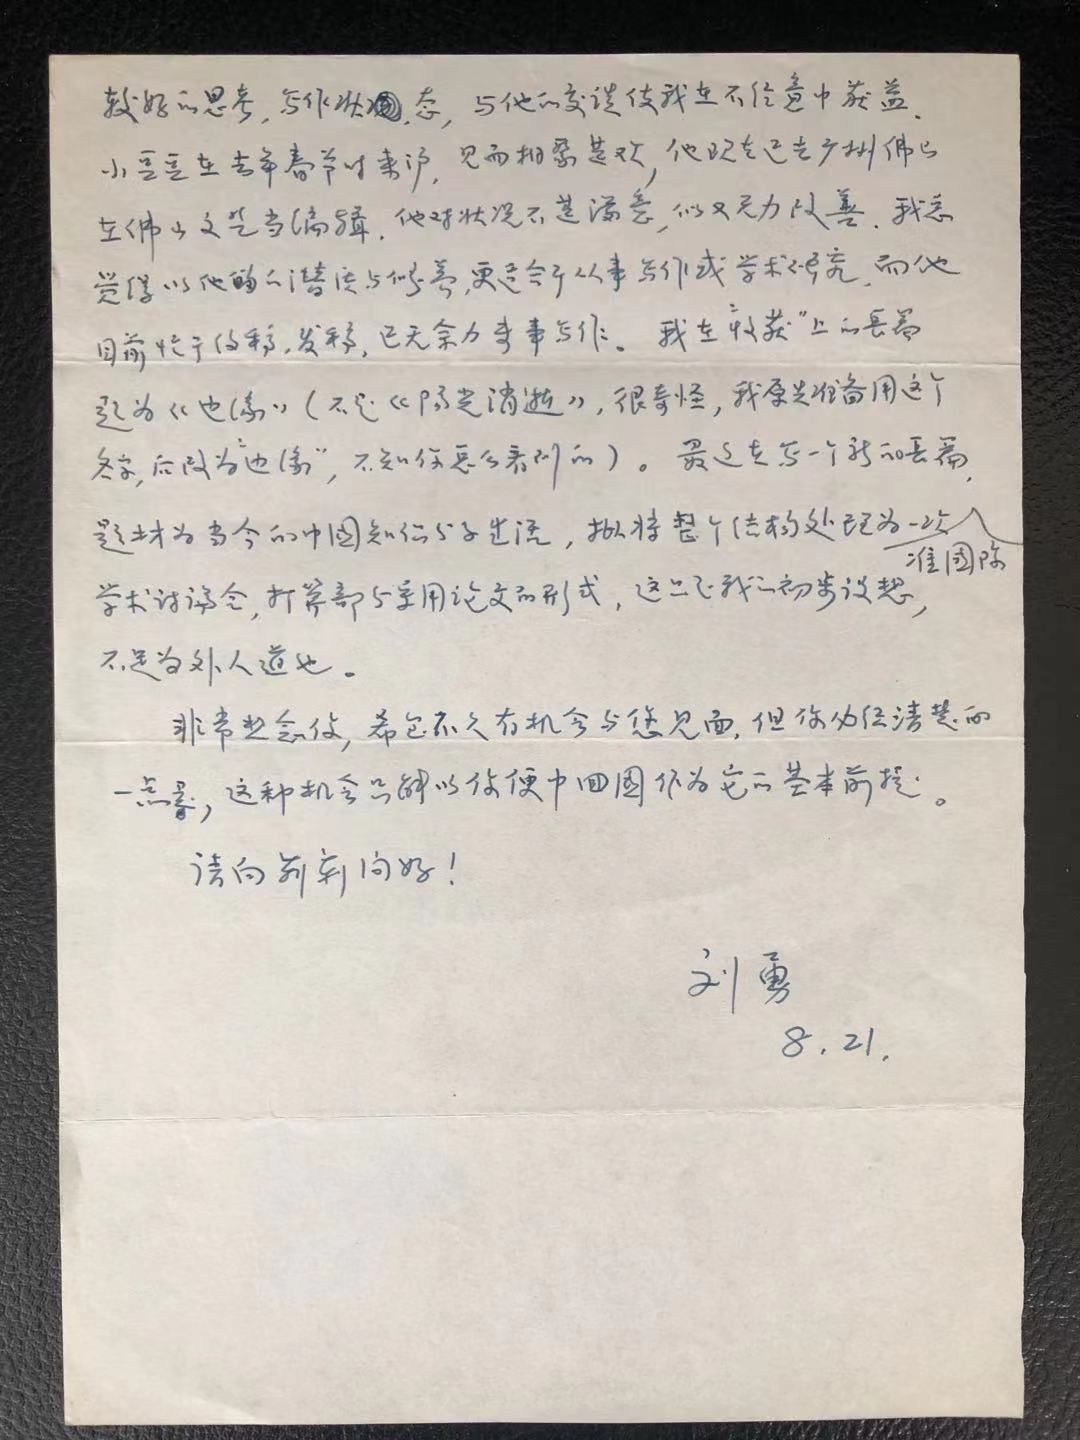 较好的思考,写作状态,与他的交谈使我在不经意中获益.
小豆豆在去年春节时来沪,见面相聚甚欢,他现在已去广州佛山
在佛山文艺当编辑.他对状况不甚满意,但又无力改善.我总
觉得以他的潜质与修养,更适合于从事写作或学术研究.而他
目前忙于约稿,发稿,已无余力来事写作。我在“收获”上的长篇
题为《边缘》(不是《阳光消逝》,很奇怪,我原先准备用这个
名字,后改为“边缘”,不知你怎么看到的)。最近在写一个新的长篇,
题材为当今的中国知识分子生活,拟将整个结构处理为一次准国际
学术讨论会,打算部分采用论文的形式,这只是我的初步设想,
不足为外人道也。
非常想念你,希望不久有机会与您见面,但你也清楚的
一点是,这种机会只能以你便中回国作为它的基本前提。
请向新问好!
刘勇
8.21.